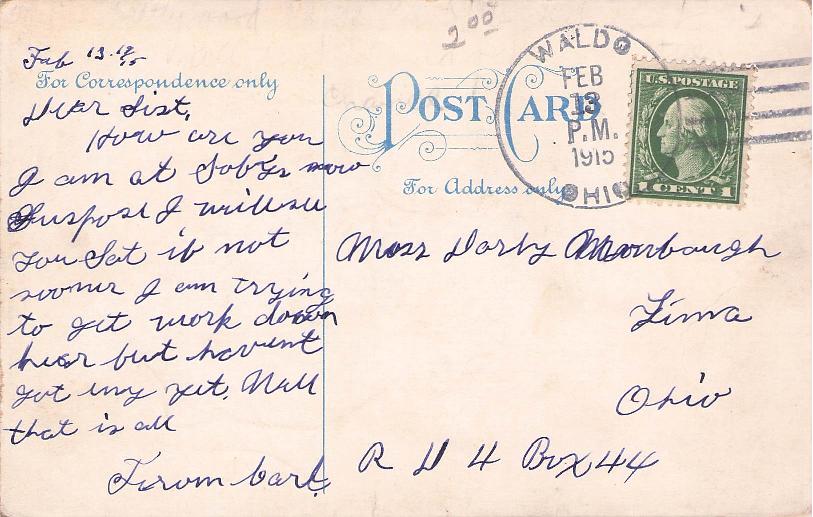 2.00
Feb 13. 19/15
For Correspondence only
Dear Sist,
How are you
I am at now
Suspose I will see
you Sat if not
sooner I am trying
to get work down
hear but havent
got eny yet. Well
that is all
From Carl.
POST CARD
For Address only
WALDO
FEB
13
P.M.
1915
OHIO
U.S. POSTAGE
1 CENT 1
Miss Darby
Lima
Ohio
R D 4 Box 44